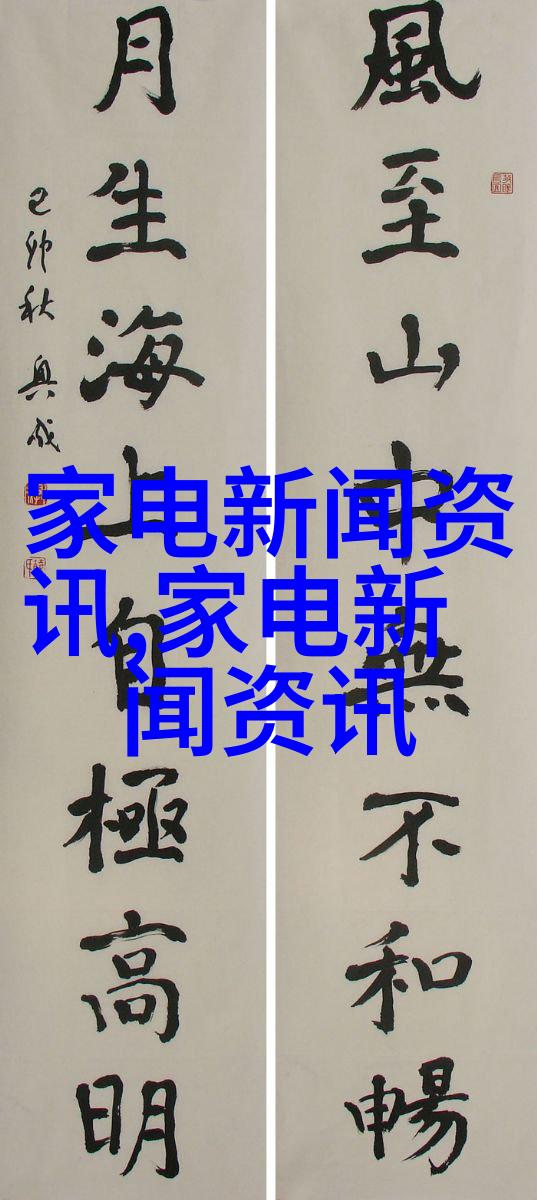 風至山中無不和暢
月生海上自極高明
己卯秋 興成
家电新闻资
讯,家电新
闻资讯